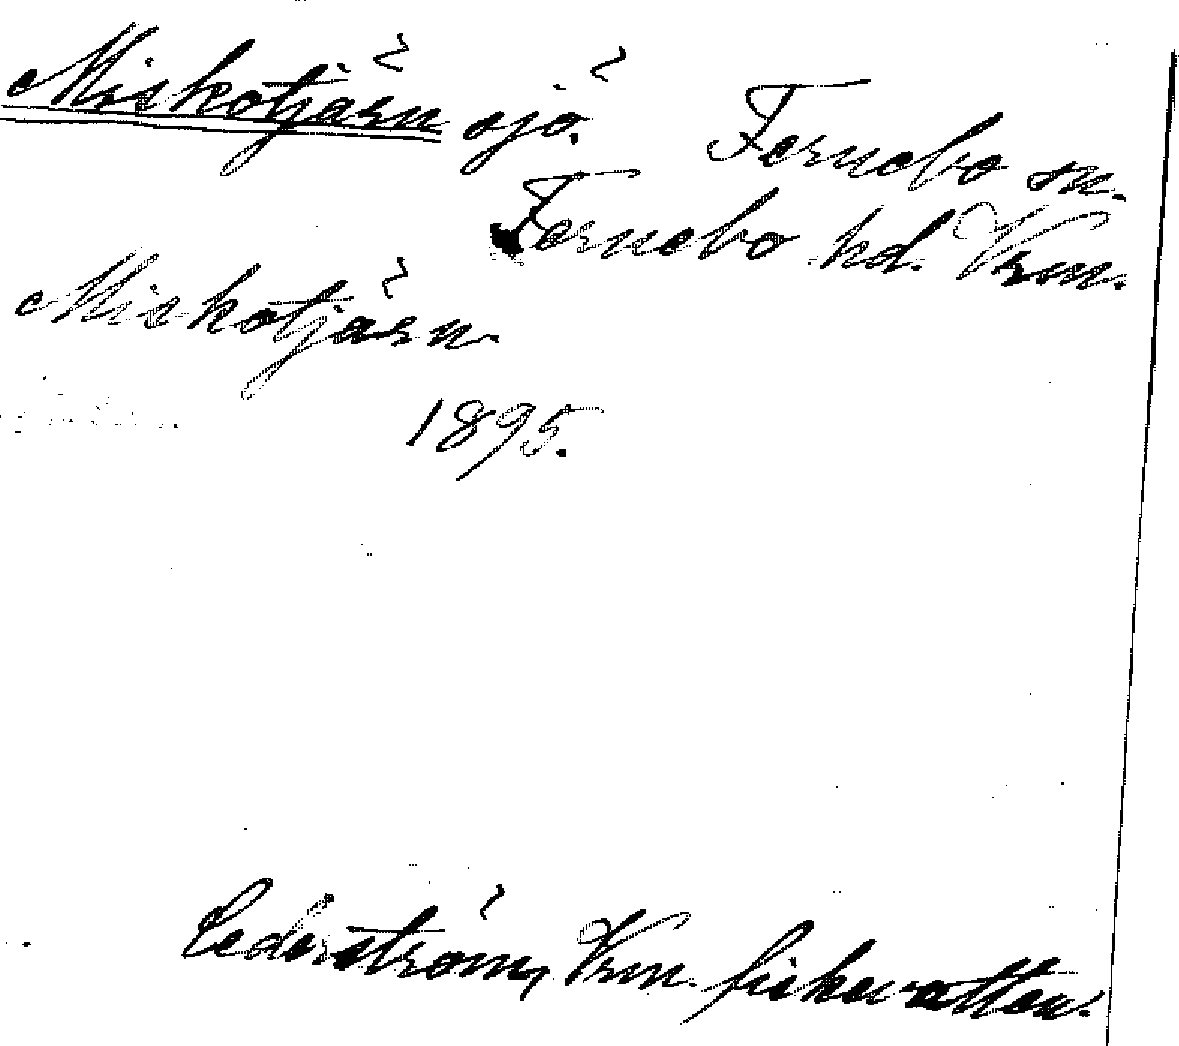 Miskotjärn sjö. Fernebo sn.
Fernebo hd. Vrm.
Miskotjärn.
1895.
Cederström, Vrm. fiskevatten.